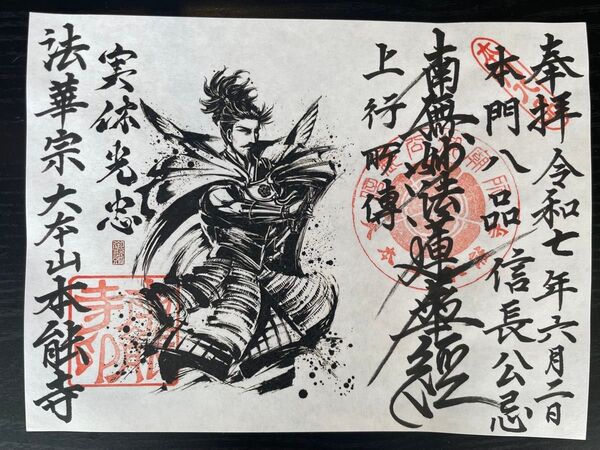 奉拝 令和七年六月二日
本門八品 信長公忌
南無妙法蓮華經
上行所傳
実休光忠
法華宗大本山本能寺